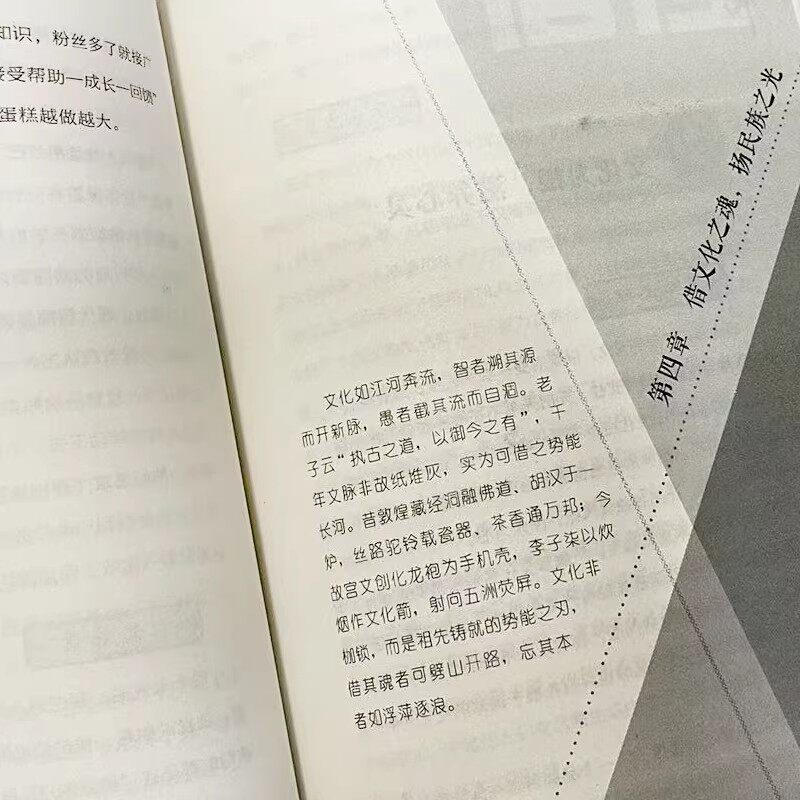 知识，粉丝多了就接广
接受帮助—成长—回馈”
蛋糕越做越大。
第四章 借文化之魂，扬民族之光
文化如江河奔流，智者溯其源
而开新脉，愚者截其流而自涸。老
子云“执古之道，以御今之有”，千
年文脉非故纸堆灰，实为可借之势能
长河。昔敦煌藏经洞融佛道、胡汉于一
炉，丝路驼铃载瓷器、茶香通万邦；今
故宫文创化龙袍为手机壳，李子柒以炊
烟作文化箭，射向五洲荧屏。文化非
枷锁，而是祖先铸就的势能之刃，
借其魂者可劈山开路，忘其本
者如浮萍逐浪。